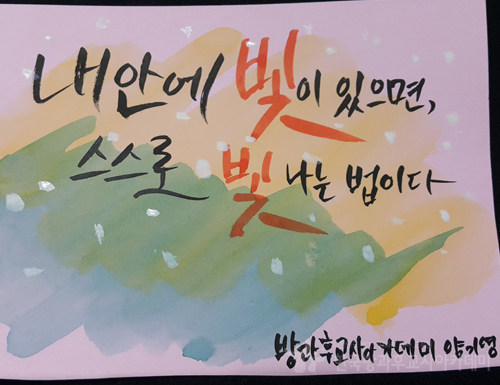 내안에 빛이 있으면,
스스로 빛 나는 법이다
방과후교사아카데미 양기영